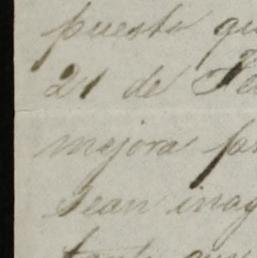 puesto qu
21 de Fe
mejora pa
sean inag